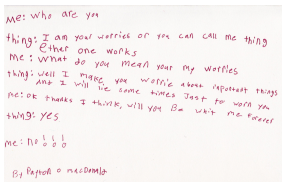 me: who are you
thing: I am your worries or you can call me thing
Ether one works
me: what do you mean your my worries
thing: well I make you worrie about inportant things
And I will lie some times Just to worn you
me: ok thanks I think, will you Be whit me forever
thing: yes
me: no!!!
By Payton O macDonald